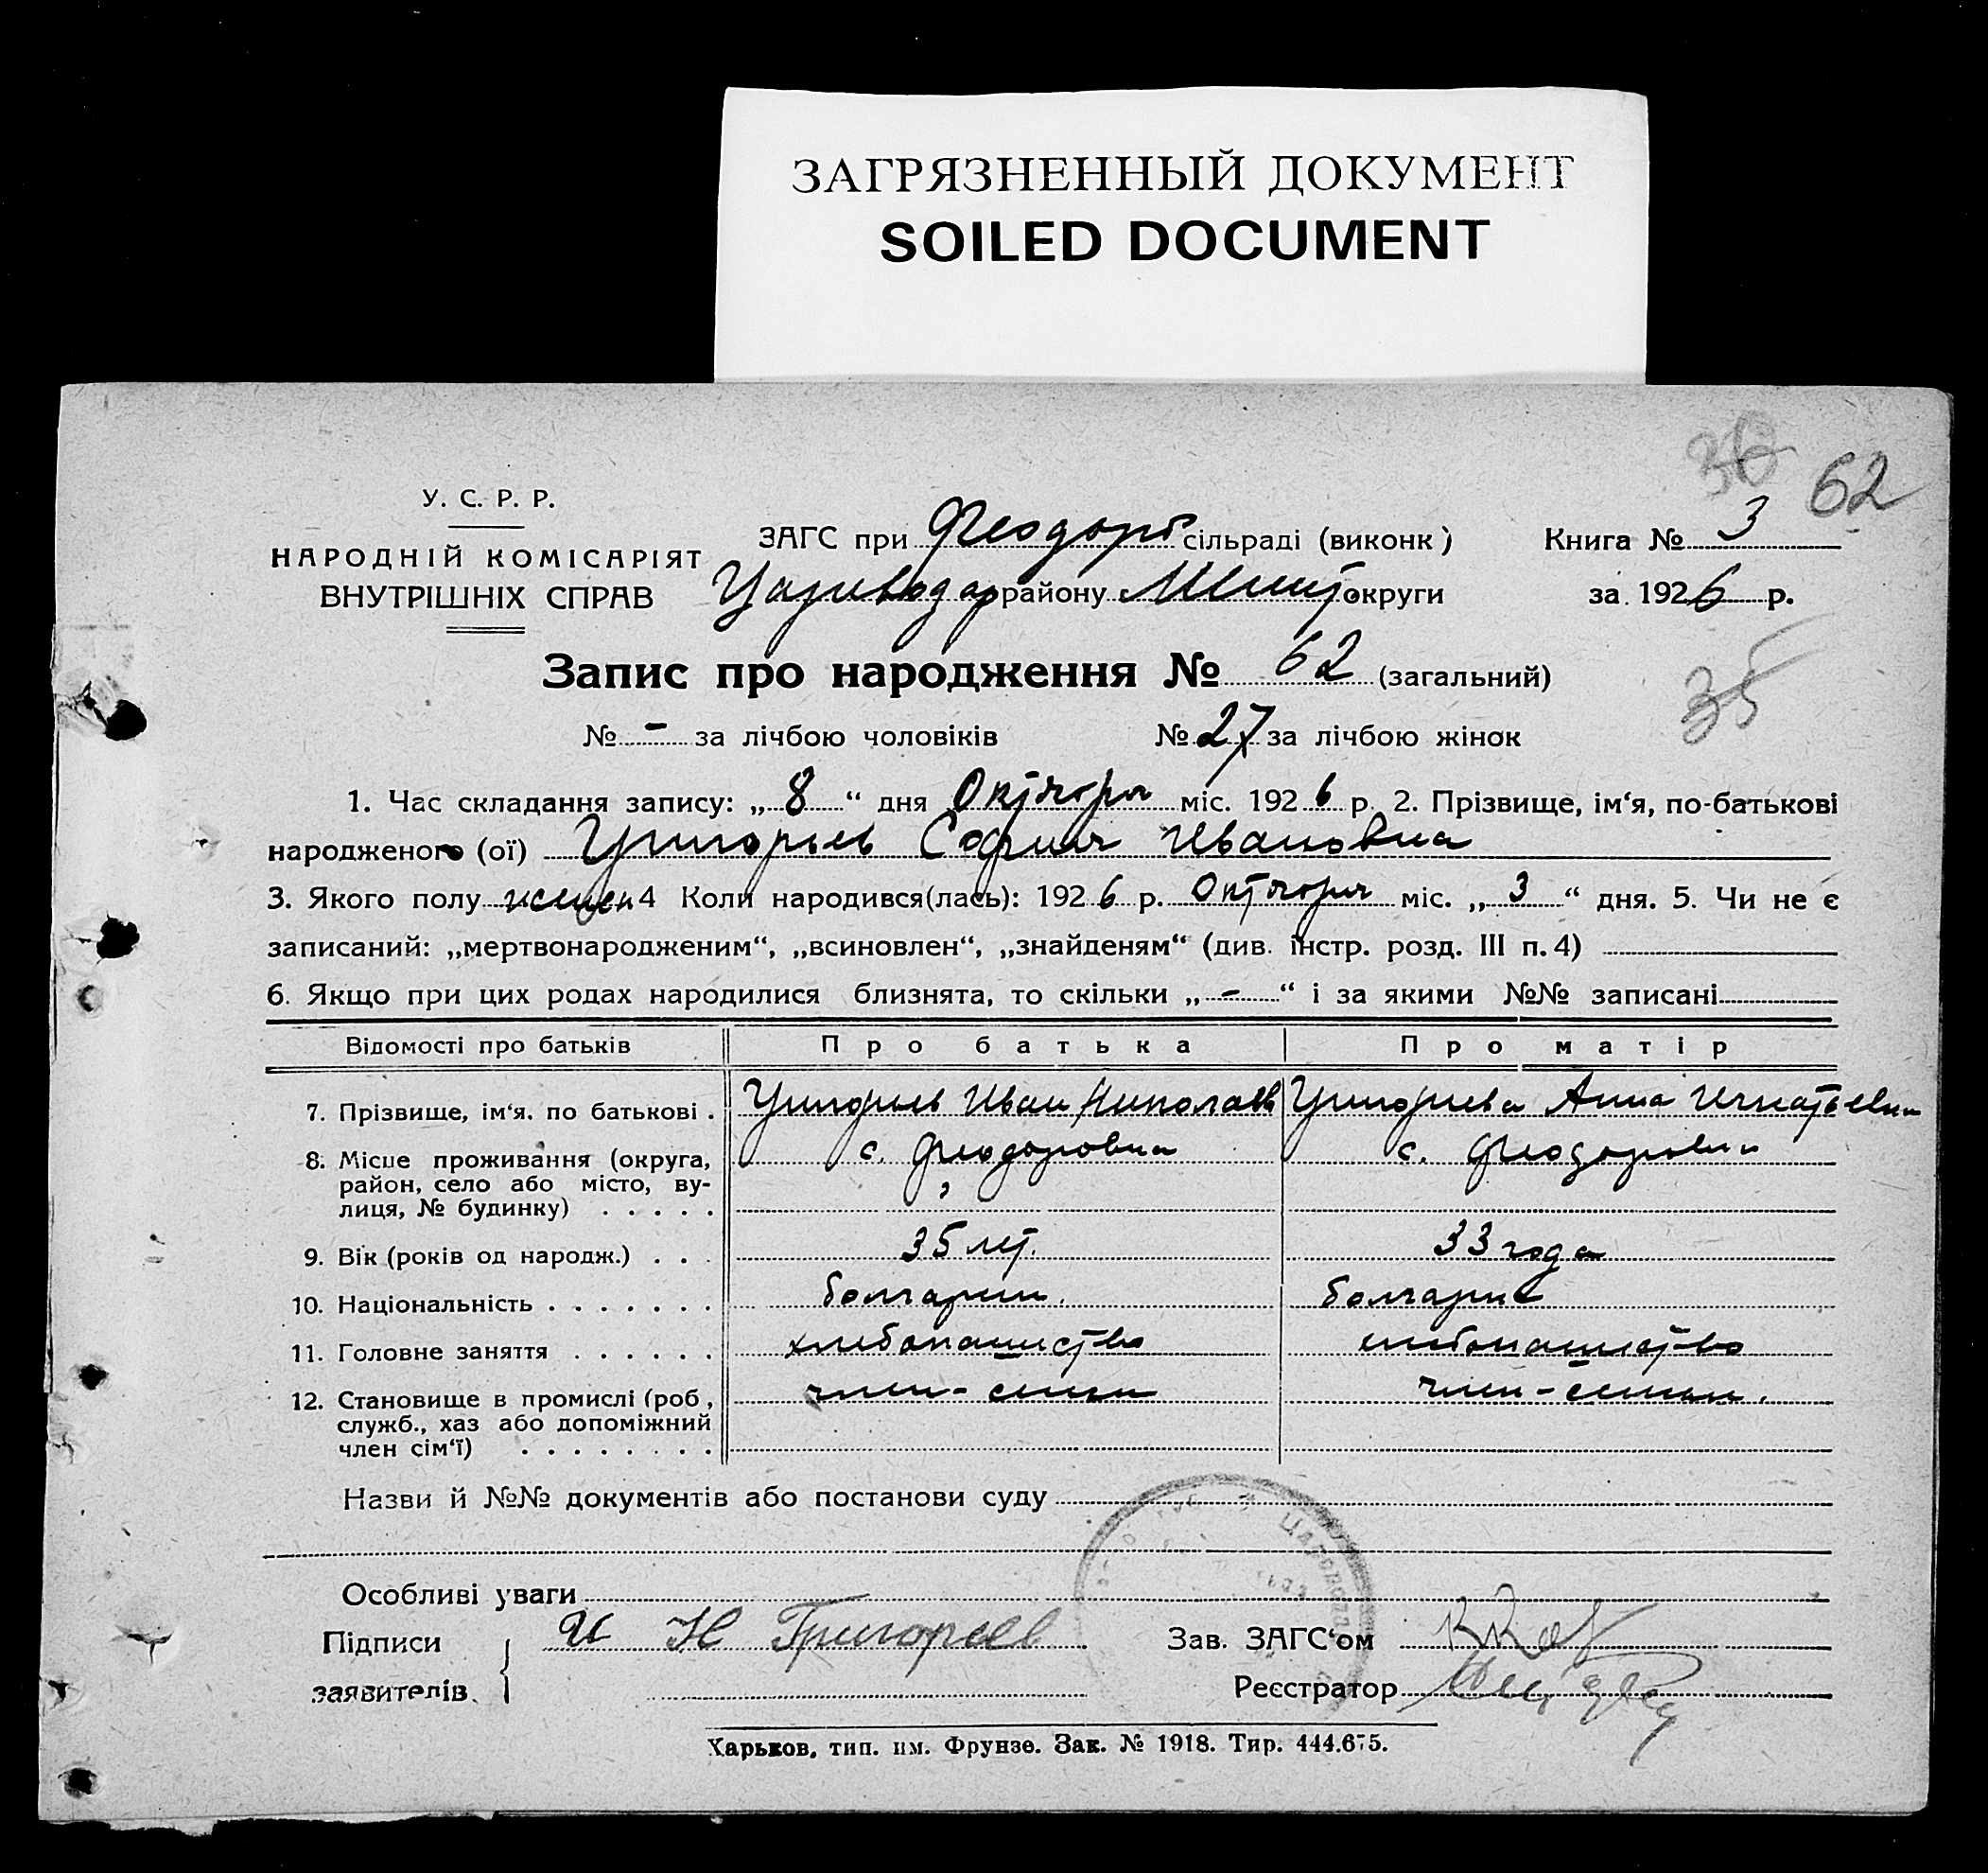 ЗАГРЯЗНЕННЫЙ ДОКУМЕНТ
SOILED DOCUMENT
30 62
У. С. Р. Р.
НАРОДНІЙ КОМІСАРІЯТ
ВНУТРІШНІХ СПРАВ
ЗАГС при Феодор сільраді (виконк) Книга № 3
району округи за 1926 р.
Запис про народження № 62 (загальний)
35
№ - за лічбою чоловіків № 27 за лічбою жінок
1. Час складання запису: „ 8 “ дня Октября міс. 1926 р. 2. Прізвище, ім‘я, по-батькові
народженого (ої) Григорьев София Ивановна
3. Якого полу женск 4 Коли народився(лась): 1926 р. Октября міс. „ 3 “ дня. 5. Чи не є
записаний: „мертвонародженим“, „всиновлен“, „знайденям“ (див. інстр. розд. III п. 4)
6. Якщо при цих родах народилися близнята, то скільки „ - “ і за якими №№ записані
Відомості про батьків Про батька Про матір
7. Прізвище, ім‘я. по батькові . Григорьев Иван Николаев Григорьева Анна Игнатьевна
8. Місце проживання (округа, с. Феодоровка с. Феодоровка
район, село або місто, ву-
лиця, № будинку) . . . . .
9. Вік (років од народж.) . . . 35 лет. 33 года
10. Національність . . . . . . . болгарин. болгарие
11. Головне заняття . . . . . . хлебопашество хлебопашество
12. Становище в промислі (роб, член-семьи член-семьи.
служб., хаз або допоміжний
член сім‘ї) . . . . . . . .
Назви й №№ документів або постанови суду
Особливі уваги
Підписи И Н Григорьев Зав. ЗАГС‘ом
заявителів. Реєстратор
Харьков, тип. им. Фрунзе. Зак. № 1918. Тир. 444.675.